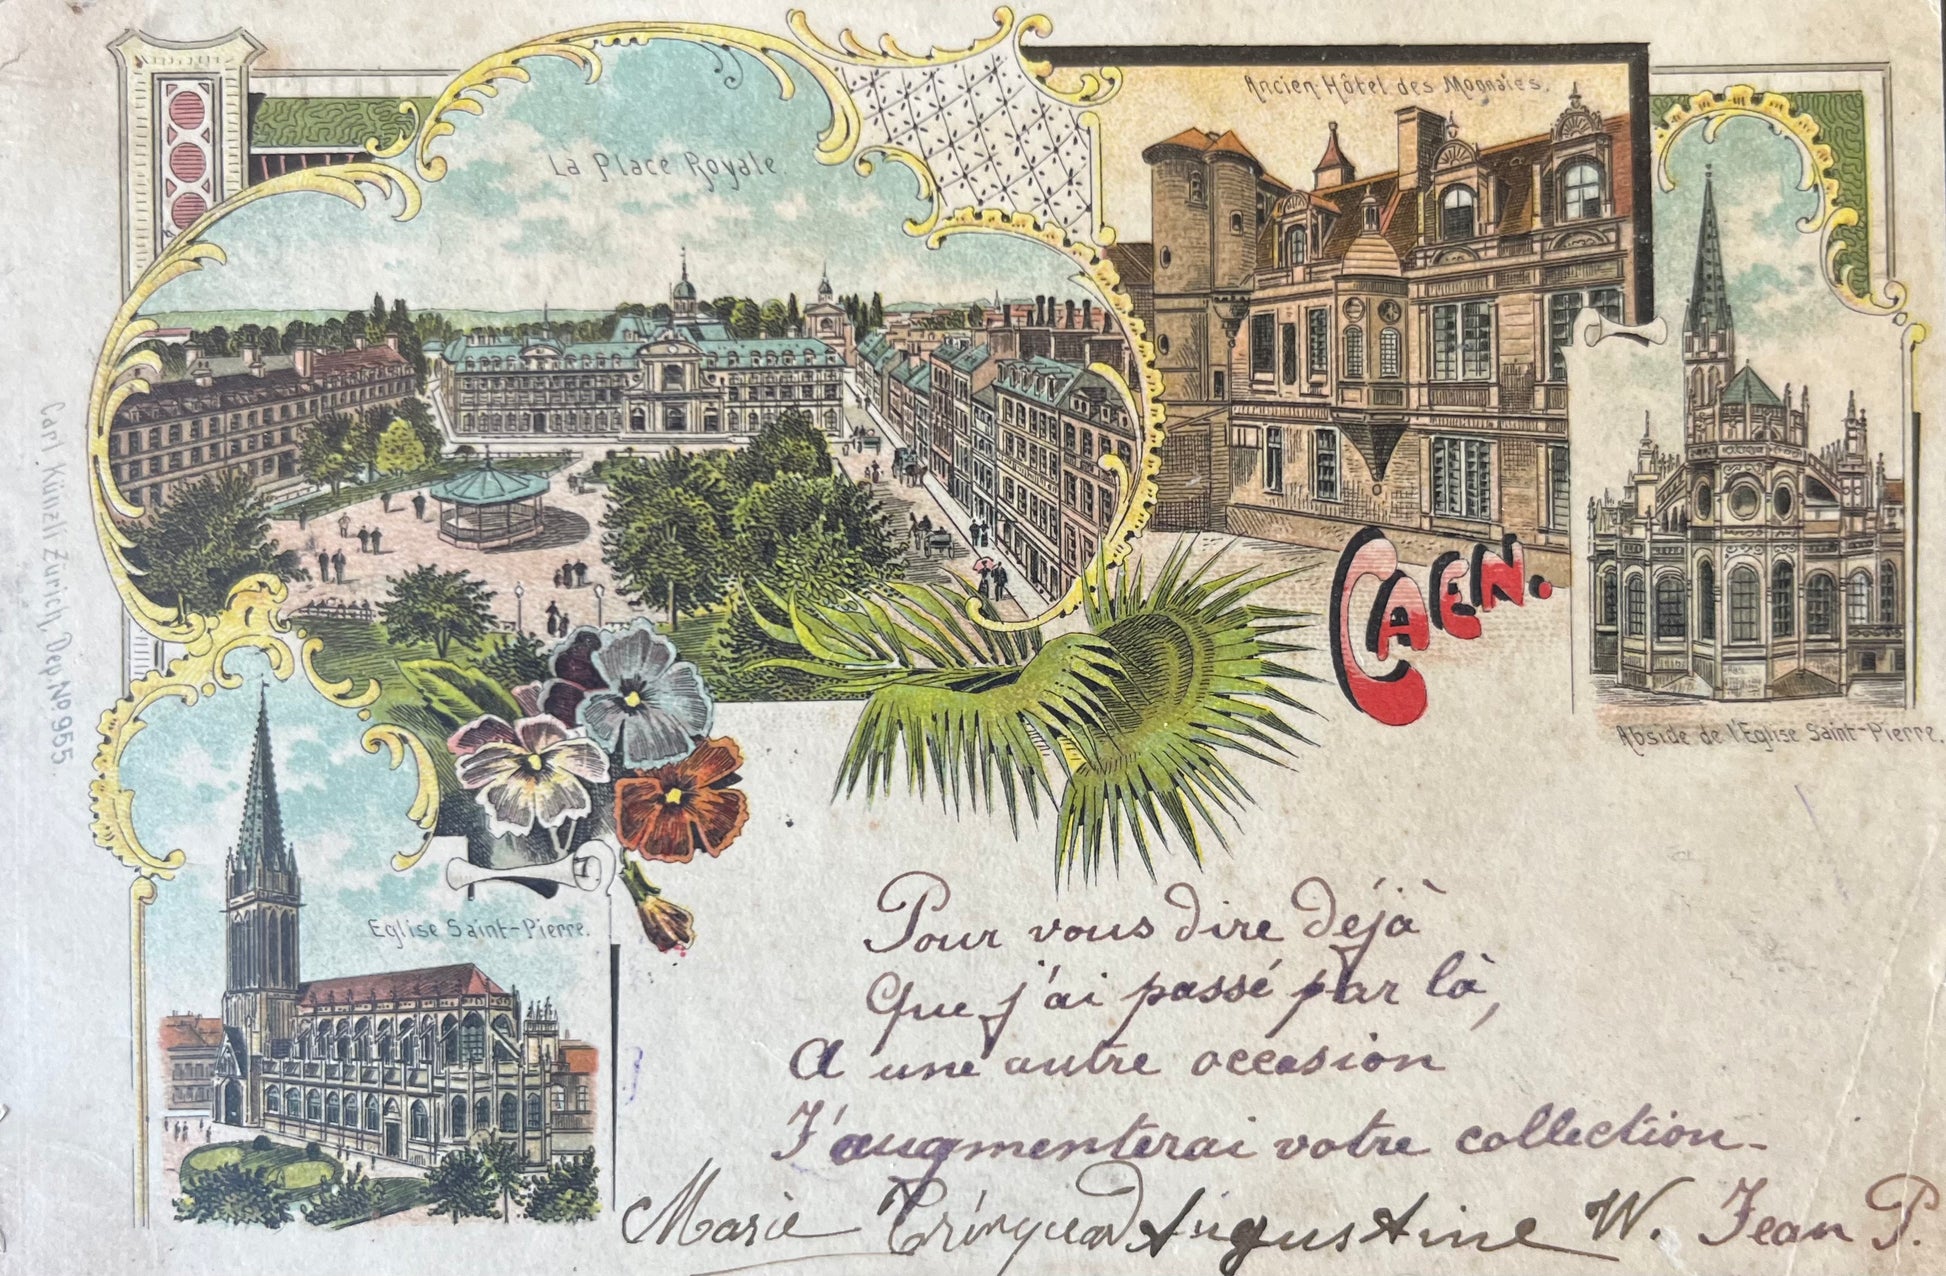 La Place Royale
Ancien Hôtel des Monnaies.
CAEN.
Abside de l'Eglise Saint-Pierre.
Eglise Saint-Pierre.
Carl Künzli Zürich, Dep. No 955.
Pour vous dire déjà
Que j'ai passé par là,
A une autre occasion
J'augmenterai votre collection-
Marie Augustine W. Jean P.